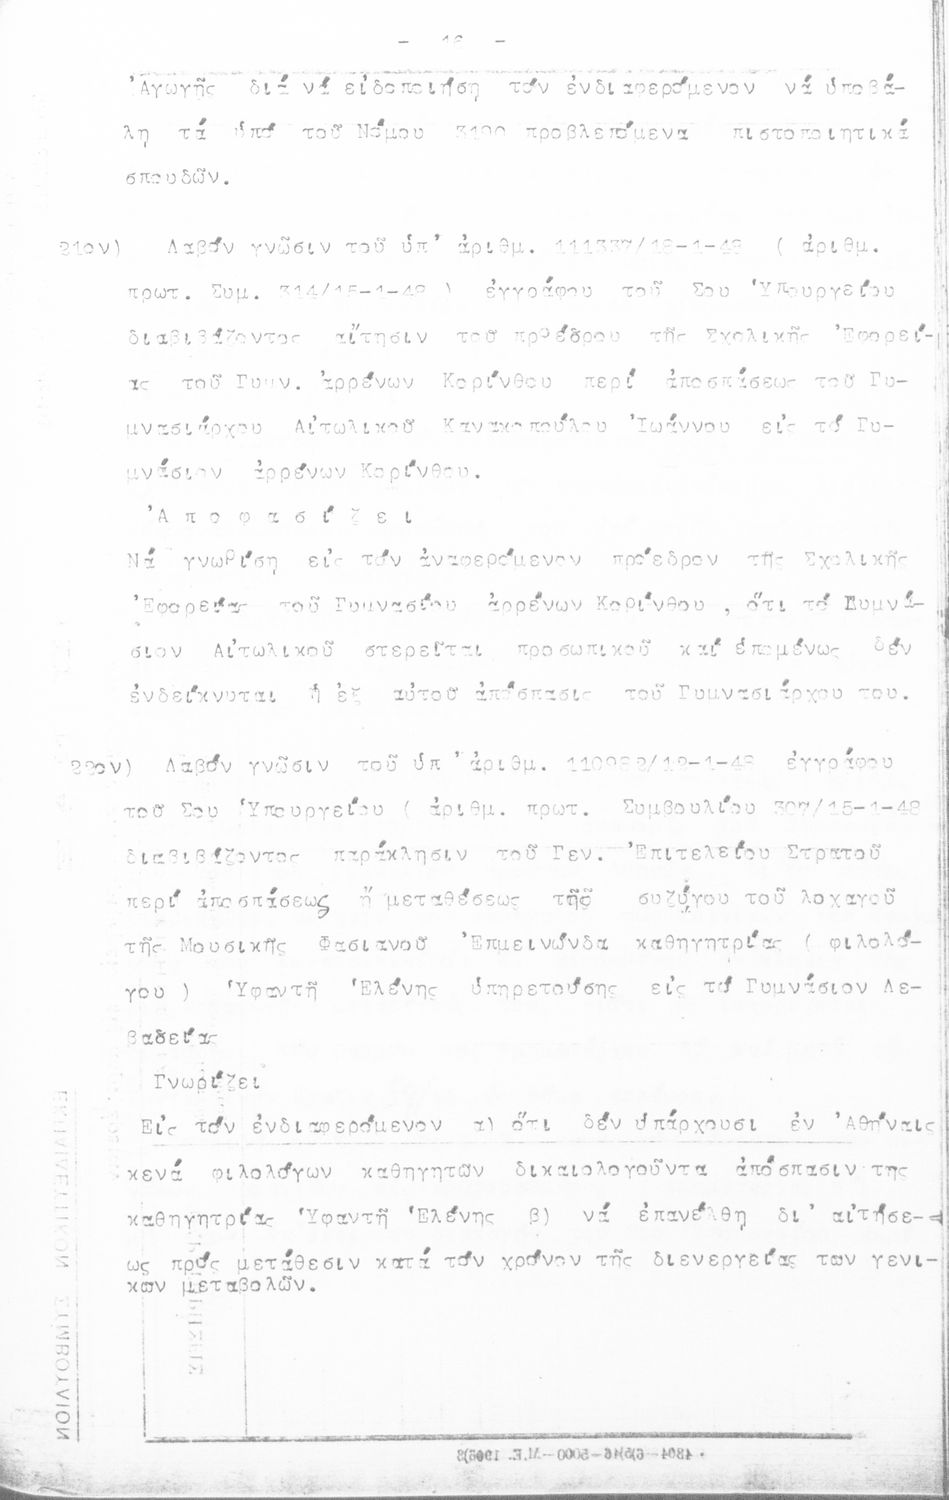 - 16 -
Ἀγωγῆς διά νά εἰδοποιήση τόν ἐνδιαφερόμενον νά ὑποβά-
λη τά ὑπό τοῦ Νόμου 3190 προβλεπόμενα πιστοποιητικά
σπουδῶν.
21ον) Λαβόν γνῶσιν τοῦ ὑπ' ἀριθμ. 111337/12-1-48 ( ἀριθμ.
πρωτ. Συμ. 314/15-1-48 ) ἐγγράφου τοῦ Σου Ὑπουργείου
διαβιβάζοντος αἴτησιν τοῦ προέδρου τῆς Σχολικῆς Ἐφορεί-
ας τοῦ Γυμν. ἀρρένων Κορίνθου περί ἀποσπάσεως τοῦ Γυ-
μνασιάρχου Αἰτωλικοῦ Κανακοπούλου Ἰωάννου εἰς τό Γυ-
μνάσιον ἀρρένων Κορίνθου.
Ἀ π ο φ α σ ί ζ ε ι
Νά γνωρίση εἰς τόν ἀναφερόμενον πρόεδρον τῆς Σχολικῆς
Ἐφορείας τοῦ Γυμνασίου ἀρρένων Κορίνθου , ὅτι τό Γυμνά-
σιον Αἰτωλικοῦ στερεῖται προσωπικοῦ καί ἑπομένως δέν
ἐνδείκνυται ἡ ἐξ αὐτοῦ ἀπόσπασις τοῦ Γυμνασιάρχου του.
22ον) Λαβόν γνῶσιν τοῦ ὑπ ' ἀριθμ. 110982/12-1-48 ἐγγράφου
τοῦ Σου Ὑπουργείου ( ἀριθμ. πρωτ. Συμβουλίου 307/15-1-48
διαβιβάζοντος παράκλησιν τοῦ Γεν. Ἐπιτελείου Στρατοῦ
περί ἀποσπάσεως ἤ μεταθέσεως τῆς συζύγου τοῦ λοχαγοῦ
τῆς Μουσικῆς Φασιανοῦ Ἐπμεινώνδα καθηγητρίας ( φιλολό-
γου ) Ὑφαντῆ Ἑλένης ὑπηρετούσης εἰς τό Γυμνάσιον Λε-
βαδείας
Γνωρίζει
Εἰς τόν ἐνδιαφερόμενον α) ὅτι δέν ὑπάρχουσι ἐν Ἀθήναις
κενά φιλολόγων καθηγητῶν δικαιολογοῦντα ἀπόσπασιν της
καθηγητρίας Ὑφαντῆ Ἑλένης β) νά ἐπανέλθη δι' αἰτήσε-
ως πρός μετάθεσιν κατά τόν χρόνον τῆς διενεργείας των γενι-
κων μεταβολῶν.
ΕΚΠΑΙΔΕΥΤΙΚΟΝ ΣΥΜΒΟΥΛΙΟΝ